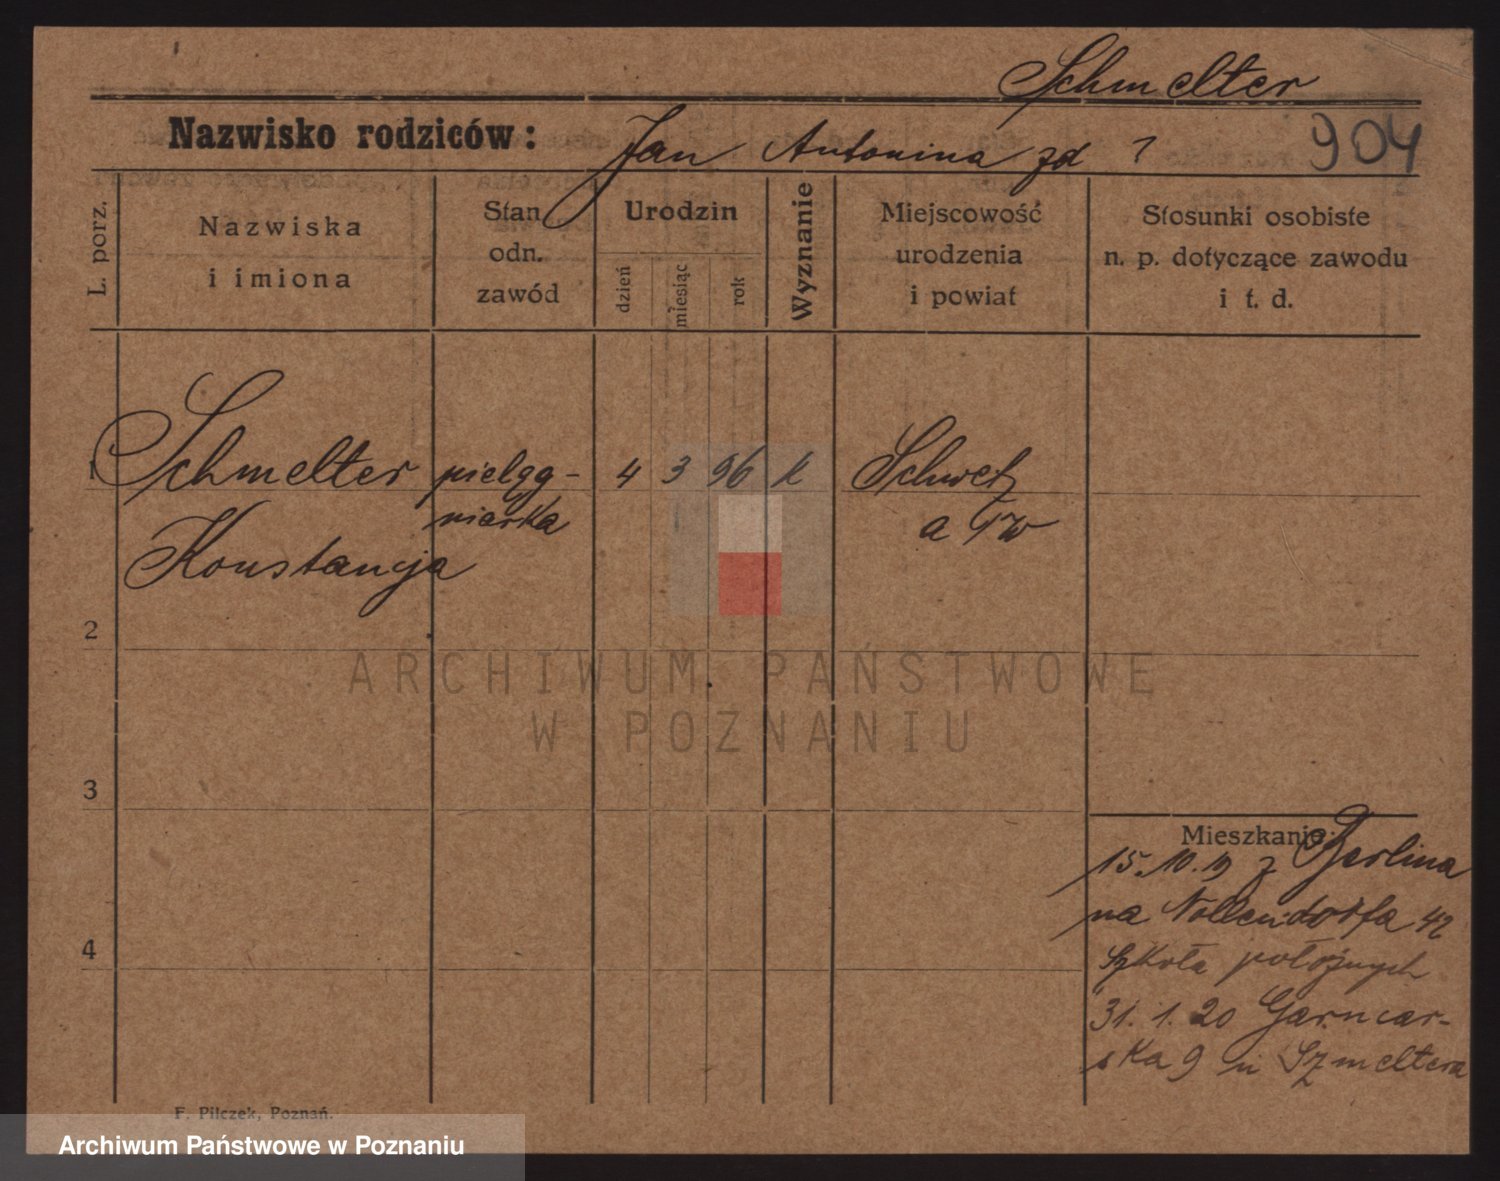 Schmelter
Nazwisko rodziców:
Jan Antonina zd ?
904
L. porz.
Nazwiska
i imiona
Stan
odn.
zawód
Urodzin
dzień
miesiąc
rok
Wyznanie
Miejscowość
urodzenia
i powiat
Stosunki osobiste
n. p. dotyczące zawodu
i t. d.
1
Schmelter
Konstancja
pielęg-
niarka
4 3 96 k
Schwetz
a/W
2
3
4
Mieszkanie:
15.10.19 z Berlina
na Nollendorfa 42
Szkoła położnych
31.1.20 Garncar-
ska 9 u Szmeltera
F. Pilczek, Poznań.
ARCHIWUM PAŃSTWOWE
W POZNANIU
Archiwum Państwowe w Poznaniu